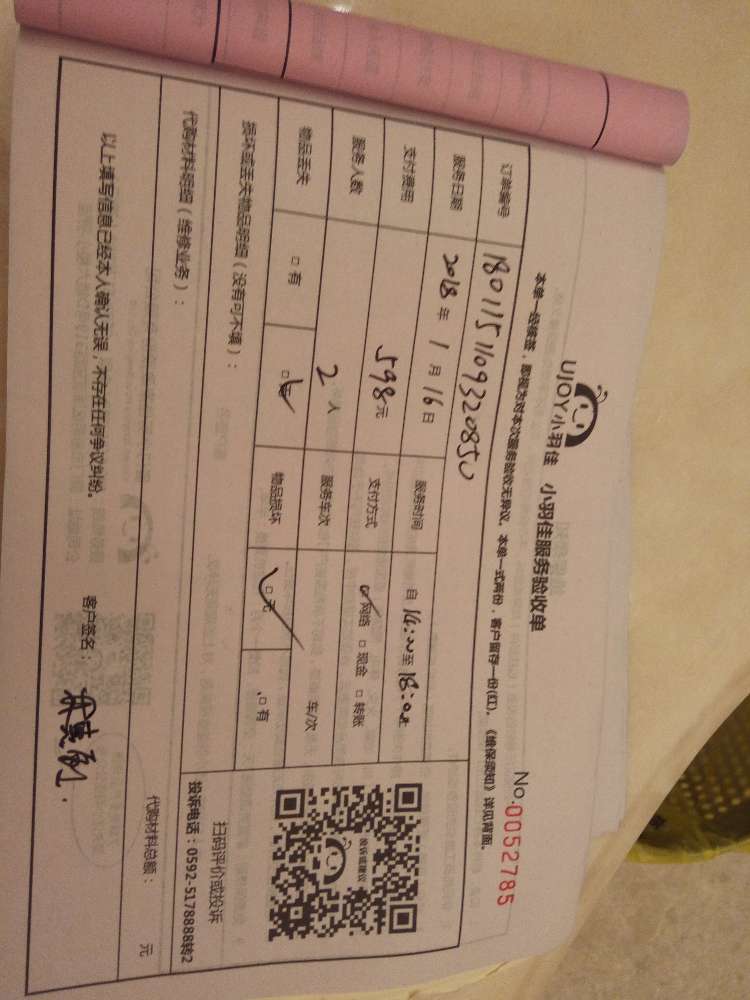 UJOY小羽佳 小羽佳服务验收单
No.0052785
本单一经接签，即视为对本次服务验收无异议。本单一式两份，客户留存一份(红)。《维保须知》详见背面。
订单编号 180115110932085
服务日期 2018年1月16日 服务时间 自 至18:00
支付费用 598元 支付方式 网络 现金 转账
服务人数 2人 服务车次 车/次
物品丢失 有 无 物品损坏 无 有
损坏或丢失物品明细（没有可不填）：
投诉或建议
扫码评价或投诉
投诉电话：0592-5178888转2
代购材料明细（维修业务）：
代购材料总额： 元
以上填写信息已经本人确认无误，不存在任何争议纠纷。 客户签名：